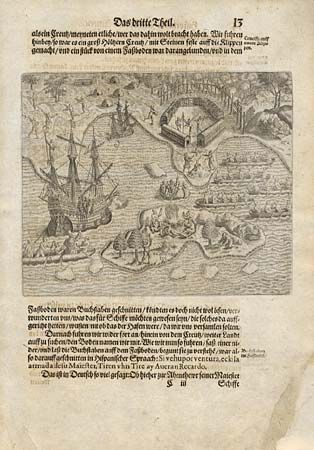 Das dritte Theil.
13
als ein Creutz/ meyneten etliche/ wer das dahin wolt bracht haben. Wir fuhren
hinbey/ so war es ein groß Höltzern Creutz/ mit Steinen feste auff die Klippen
gemacht/ vnd ein stück von einem Faßboden war daran gebunden/ vnd in dem
Creutz auff
einem
Faßboden waren Buchstaben geschnitten/ kündten es doch nicht wol lesen/ ver-
wunderten vns/ was das für Schiffe möchten gewesen seyn/ die solches da auff-
gerichtet hetten/ wusten nit ob das der Hafen were/ da wir vns versamlen solten.
Darnach fuhren wir wider fort an hinein von dem Creutz/ weiter Landt
auff zu suchen/ das Boden namen wir mit. Wie wir nun so fuhren/ saß einer ni-
der/ vnd laß die Buchstaben auff dem Faßboden/ begunt sie zu verstehn/ war al-
so darauff geschnitten in Hispanischer Spraach: Si vehu por ventura, ecki la
armada desu Maiestet, Tiren vhn Tire ay Aueran Recardo.
Das ist in Deutsch so viel gesagt: Ob hieher zur Abenthewr seiner Maiestet
Buchstaben
Schiffe